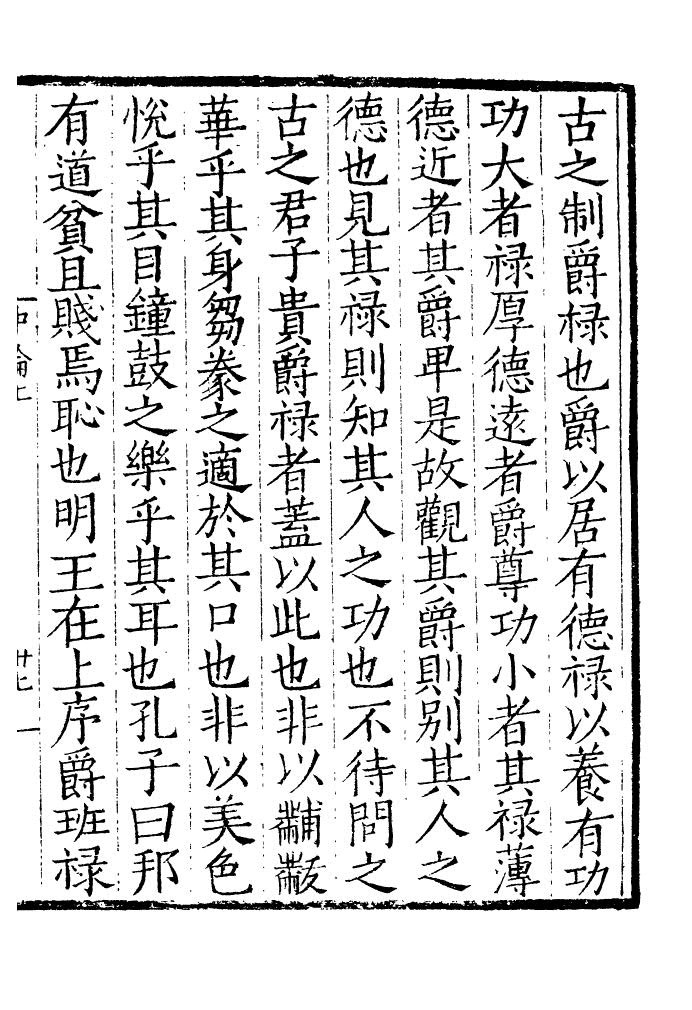 古之制爵祿也爵以居有德祿以養有功
功大者祿厚德遠者爵尊功小者其祿薄
德近者其爵卑是故觀其爵則别其人之
德也見其祿則知其人之功也不待問之
古之君子貴爵祿者蓋以此也非以黼黻
華乎其身芻豢之適於其口也非以美色
悅乎其目鐘鼓之樂乎其耳也孔子曰邦
有道貧且賤焉恥也明王在上序爵班祿
中論上
廿七